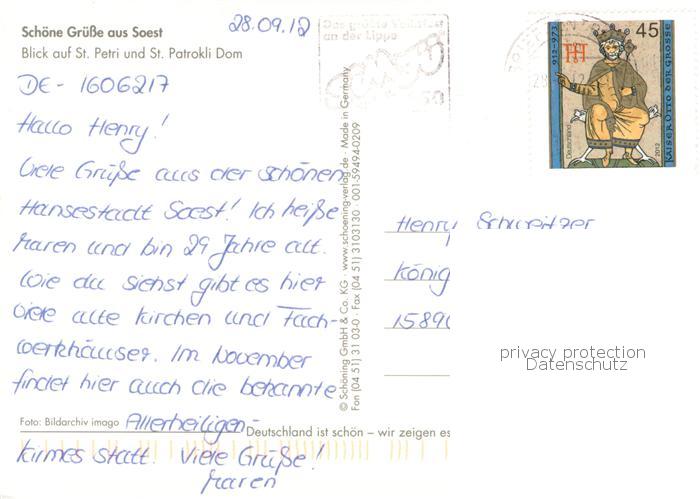 Schöne Grüße aus Soest
Blick auf St. Petri und St. Patrokli Dom
28.09.12
Das größte Volksfest
an der Lippe
DE- 1606217
Hallo Henry!
Viele Grüße aus der schönen
Hansestadt Soest! Ich heiße
Maren und bin 29 Jahre alt.
Wie du siehst gibt es hier
viele alte Kirchen und Fach-
werkhäuser. Im November
findet hier auch die bekannte
Allerheiligen-
kirmes statt. Viele Grüße!
Maren
Foto: Bildarchiv imago
Deutschland ist schön – wir zeigen es
© Schöning GmbH & Co. KG · www.schoening-verlag.de · Made in Germany
Fon (04 51) 31 03-0 · Fax (04 51) 3103130 · 001-59494-0209
912-973
45
KAISER OTTO DER GROSSE
Deutschland
2012
Henry Schweitzer
König
1589
privacy protection
Datenschutz